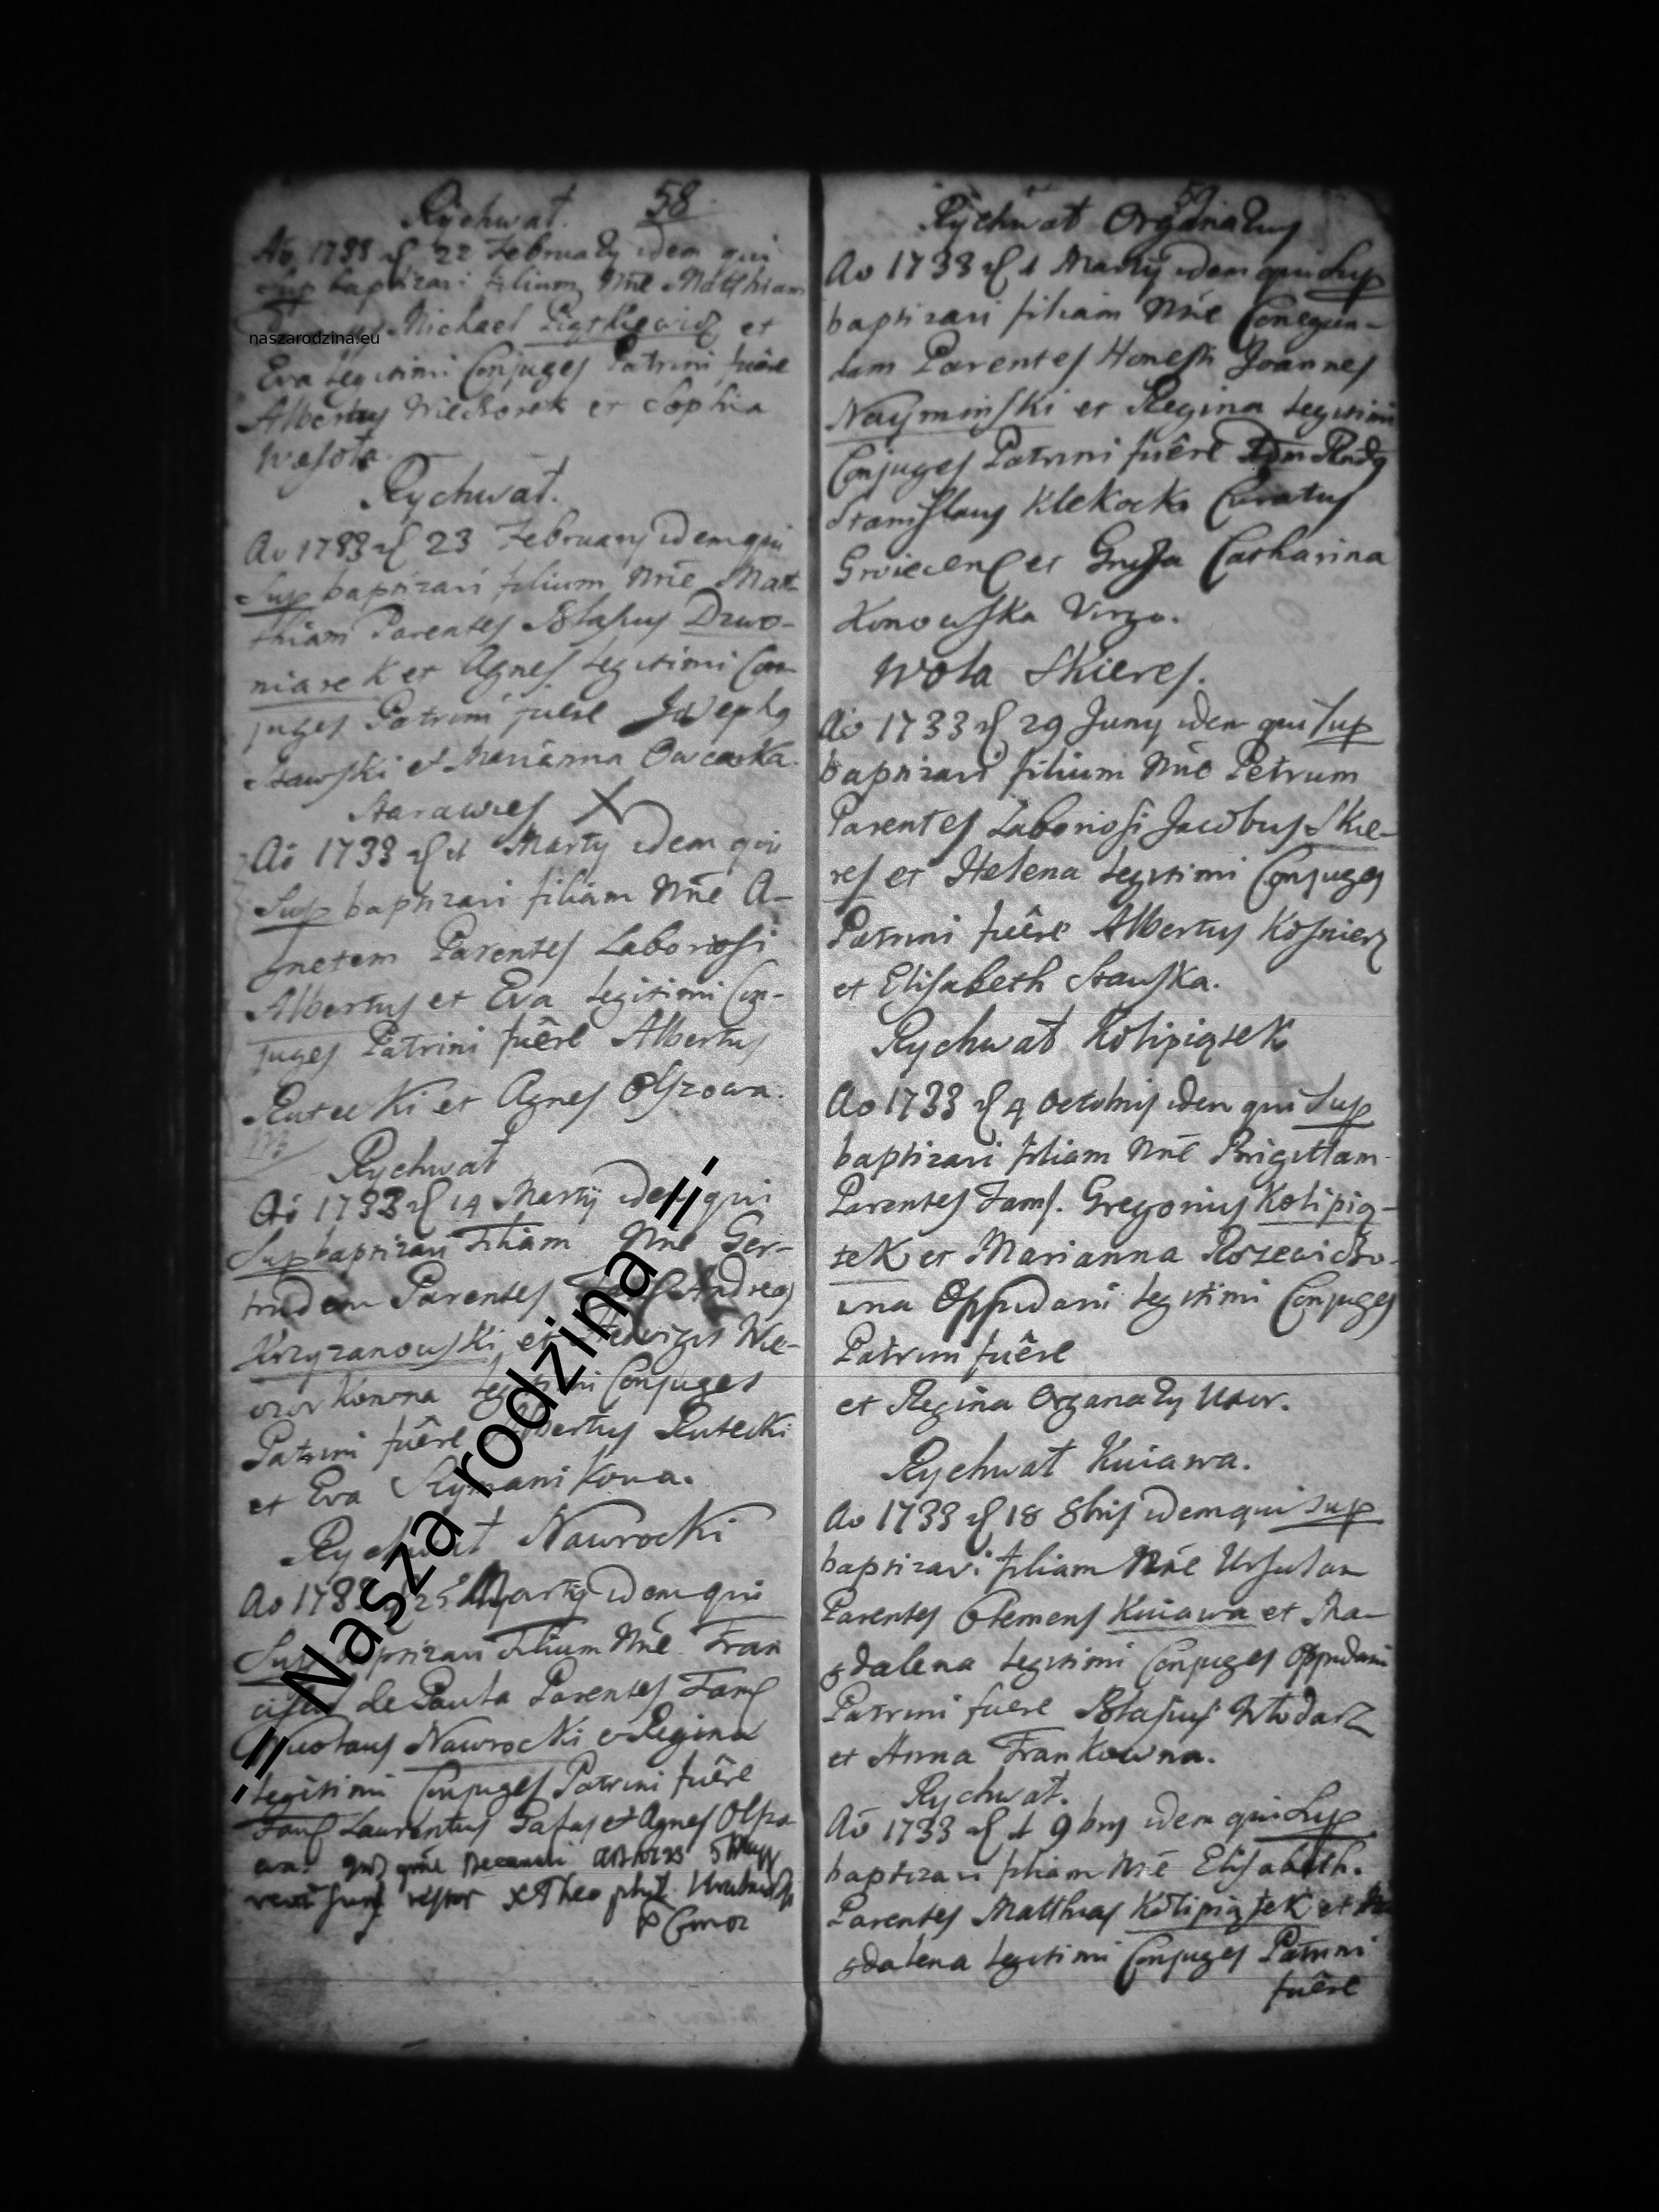 Rychwat. 58
Ao 1733 d 22 February idem qui
Sup baptizavi filium Nne Matthiam
Michael et
naszarodzina.eu
Eva legitimi Conjuges Patrini fuêre
Albertus et Sophia
Wesoła.
Rychwat.
Ao 1733 d 23 February idem qui
Sup baptizavi filium Nne Mat-
thiam Parentes Blasius Dzwo-
niarek et Agnes legitimi Con-
juges Patrini fuere Josephq
Stawski et Marianna Owczarka.
Starawies X
Aō 1733 d 1 Marty idem qui
Sup baptizavi filiam Nne A-
gnetem Parentes Laboriosi
Albertus et Eva legitimi Con-
juges Patrini fuêre Albertus
Rutecki et Agnes Olszowa.
Rychwat
Aō 1733 d 14 Martij idem qui
Sup baptizavi filiam Nne Ger-
trudem Parentes Andreas
Krzyzanowski et Hedvigis Wie-
czorkowna legitimi Conjuges
Patrini fuêre Albertus Rutecki
et Eva Szymanikowa.
Rychwat Nawrocki
Ao 1733 d 25 Martij idem qui
Sup baptizavi filium Nne Fran
ciscū de Paula Parentes Fam
Nicolaus Nawrocki et Regina
legitimi Conjuges Patrini fuêre
Fam Laurentus et Agnes Olszo-
wa.
-=Nasza rodzina=-
Rychwat Organarius
Ao 1733 d 1 Martij idem qui Sup
baptizavi filiam Nne Conegun-
dam Parentes Honesti Joannes
Nayminski et Regina legitimi
Conjuges Patrini fuêre
Stanislaus Klekocki Curatus
et Catharina
Konowska Virgo.
Wola Skieres.
Aō 1733 d 29 Juny idem qui Sup
baptizavi filium Nne Petrum
Parentes Laboriosi Jacobus Skie-
res et Helena legitimi Conjuges
Patrini fuêre Albertus Kosnierz
et Elisabeth Stawska.
Rychwat Kolipiątek
Ao 1733 d 4 Octobris idem qui Sup
baptizavi filiam Nne Brigittam
Parentes Fam. Gregorius Kolipią-
tek et Marianna Rozewiczo-
wna Oppidani legitimi Conjuges
Patrini fuêre
et Regina Organarÿ Uxor.
Rychwat Kuiawa.
Ao 1733 d 18 8bris idem qui Sup
baptizavi filiam Nne Ursulam
Parentes Clemens Kuiawa et Ma-
gdalena legitimi Conjuges Oppidani
Patrini fuere Blasius Włodarz
et Anna Frankowna.
Rychwat.
Aō 1733 d 1 9bris idem qui Sup
baptizavi filiam Nne Elisabeth.
Parentes Matthias Kolipiątek et Ma
gdalena legitimi Conjuges Patrini
fuêre